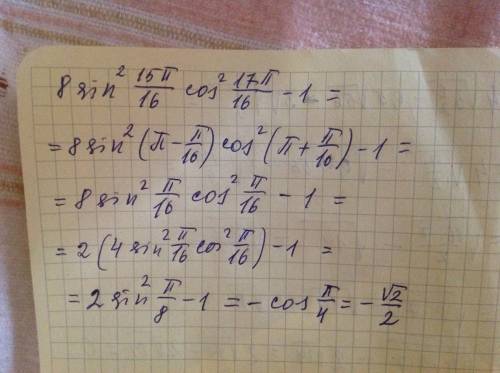 8 sin² 15π/16 cos² 17π/16 − 1 =
= 8 sin² (π − π/16) cos² (π + π/16) − 1 =
= 8 sin² π/16 cos² π/16 − 1 =
= 2 (4 sin² π/16 cos² π/16) − 1 =
= 2 sin² π/8 − 1 = − cos π/4 = − √2/2